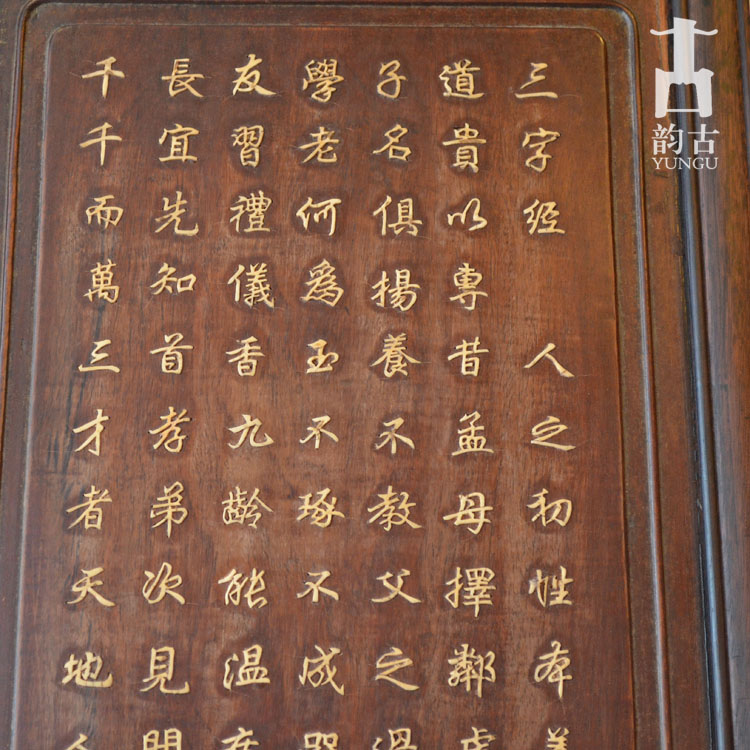 三字经 人之初性本善
道貴以專昔孟母擇鄰處
子名俱揚養不教父之過
學老何爲玉不琢不成器
友習禮儀香九齡能温席
長宜先知首孝弟次見聞
千千而萬三才者天地人
韵古
YUNGU